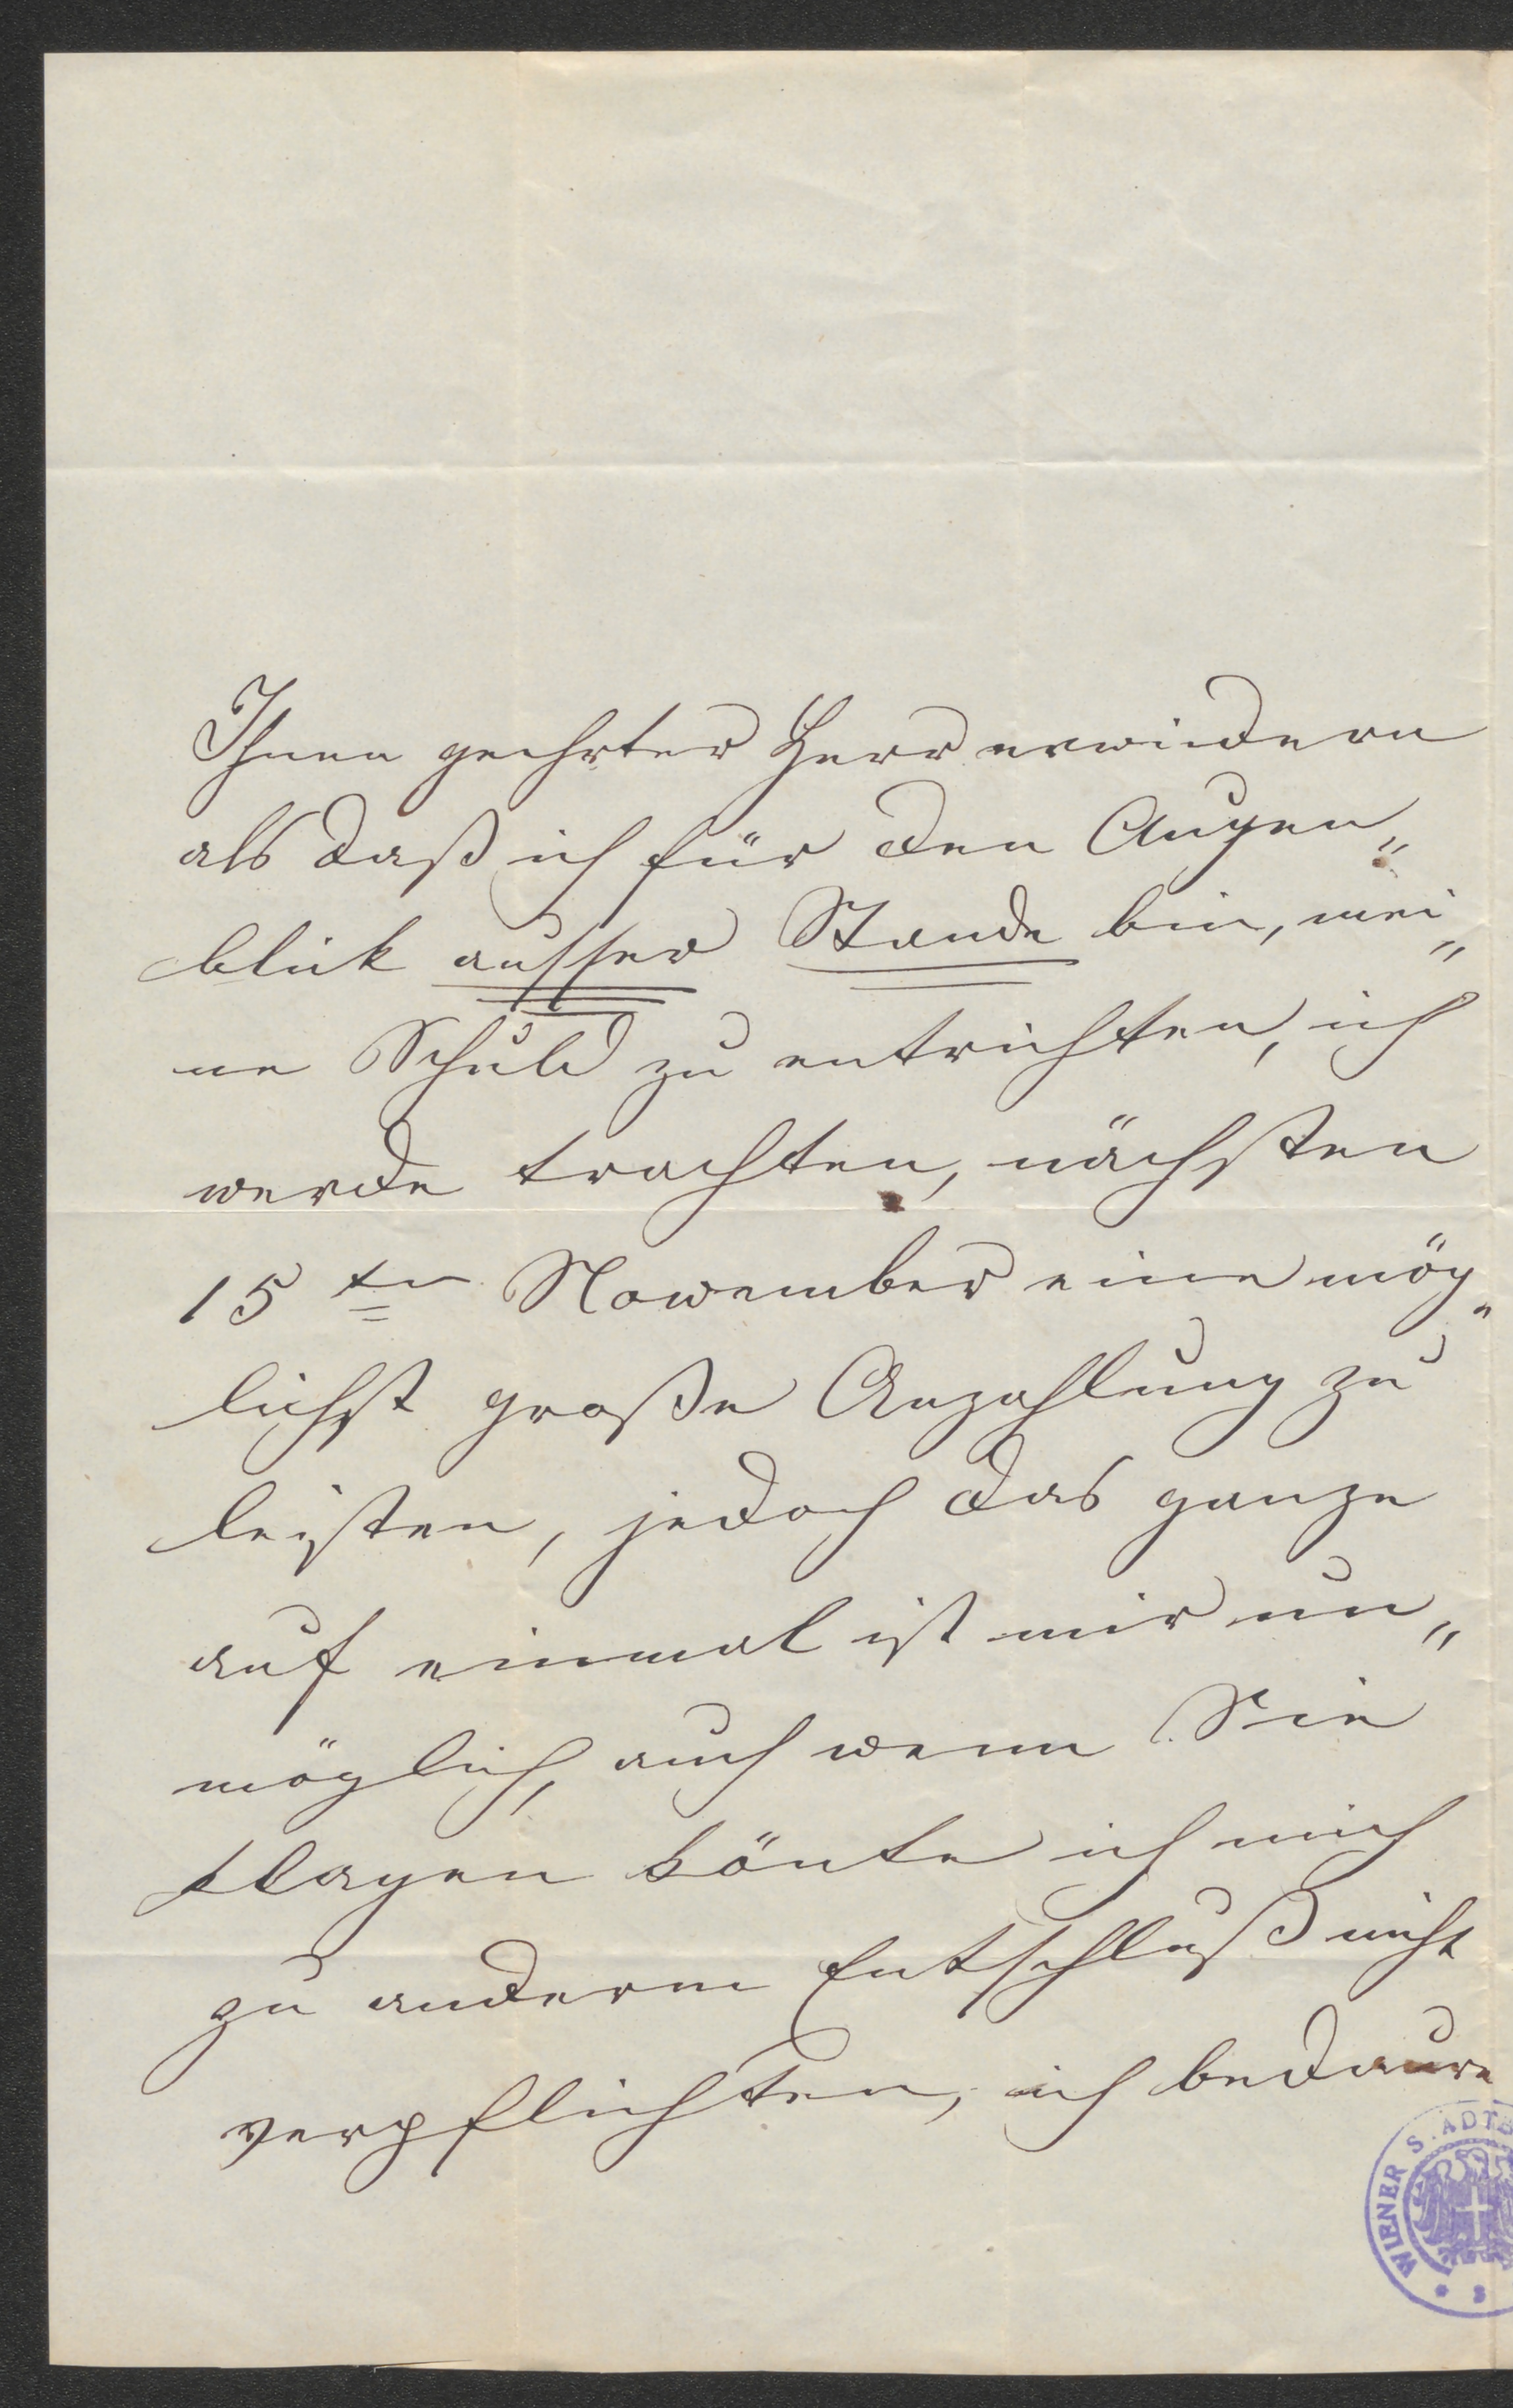 Ihnen geehrter Herr erwiedern
als daß ich für den Augen„
blick ausser Stande bin, mei„
ne Schuld zu entrichten, ich
werde trachten, nächsten
15ten Nowember eine mög„
lichst große Anzahlung zu
leisten, jedoch das ganze
auf einmal ist mir un„
möglich, auch wenn Sie
klagen könte ich mich
zu anderm Entschluß nicht
verpflichten, ich bedaure
WIENER STADTB